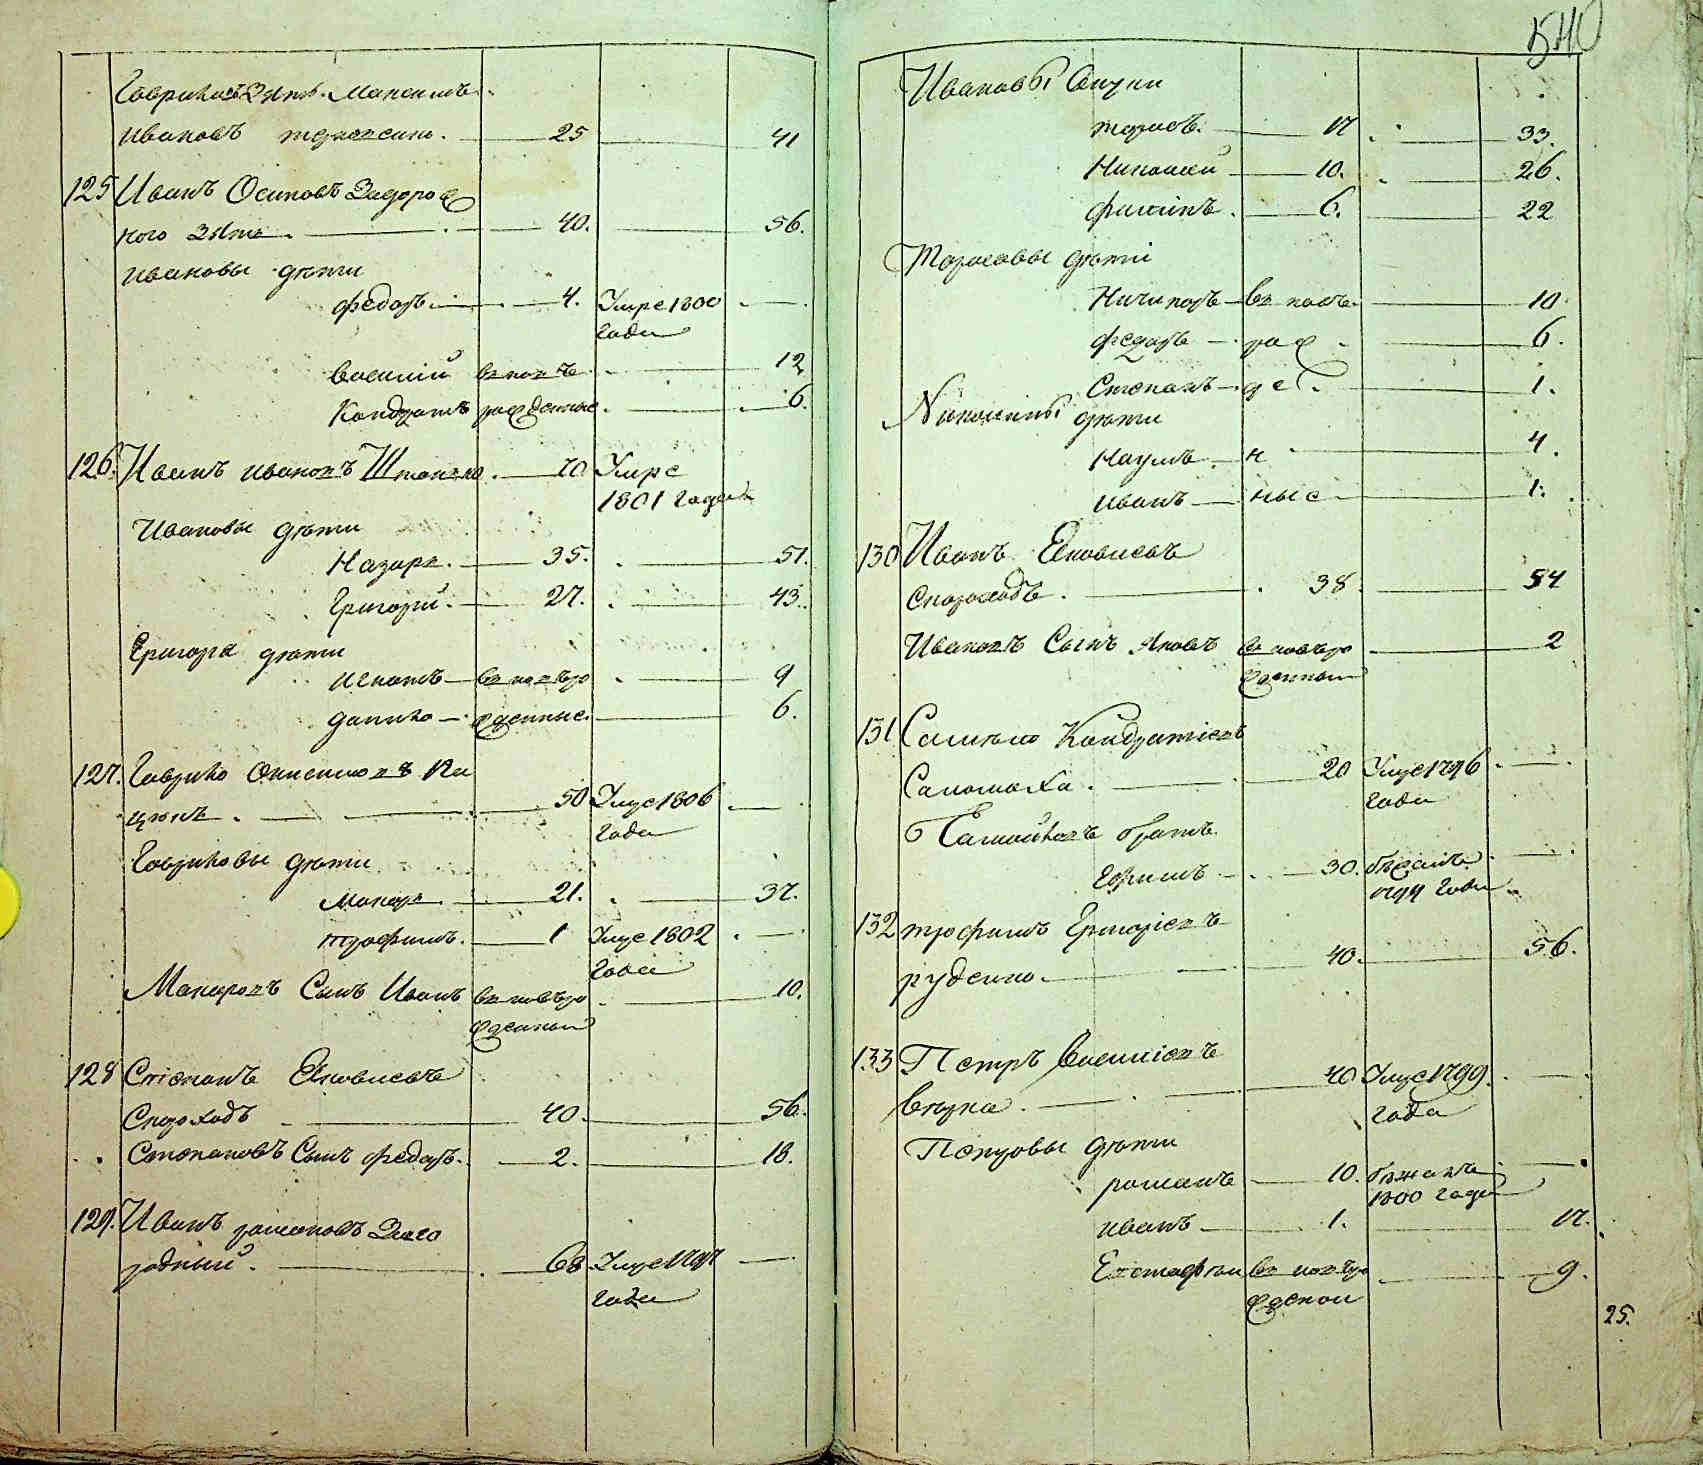 Гаврилов Зять Максимъ
Ивановъ 25 41
125 Иванъ Осиповъ Задорож
ного Зять 40. 56.
Ивановы дѣти
Федоръ 4. Умре 1800
года
Василий вновь 12
Кондратъ рожденные 6.
126. Иванъ Ивановъ 70 Умре
1801 года
Ивановы дѣти
Назаръ 35. 51.
Григорій 27. 43.
Григоря дѣти
Игнатъ вновьро 9
Данило жденные. 6.
127. Гаврило Онисимовъ Ка
50 Умре 1806
года
Гавриловы дѣти
Макаръ 21. 37.
Трофимъ. 1 Умре 1802
года
Макаровъ Сынъ Иванъ вновьро 10.
жденный
128 Степанъ Яковлевъ
Скороходъ 40. 56.
Степановъ Сынъ Федоръ. 2. 18.
129. Иванъ Романовъ Заго
родный. 68 Умре 1797
года
540
Ивановы Внуки
Тарасъ. 17 33.
Николай 10. 26.
Филипъ. 6. 22
Тарасовы дѣти
Ничипоръ вновь 10
Федоръ рож 6.
Степанъ де 1.
Николины дѣти
Наумъ н 4.
Иванъ ные 1.
130 Иванъ Яковлевъ
Скороходъ. 38. 54
Ивановъ Сынъ Яковъ вновьро 2
жденный
131 Самойло Кондратіевъ
Саломаха. 20 Умре 1796
года
Самойловъ братъ
Ефимъ 30. бѣжалъ
года
132 Трофимъ Григоріевъ
Руденко. 40. 56.
133 Петръ Василіевъ
40 Умре 1799
года
Петровы дѣти
Романъ 10. бѣжалъ
1800 года
Иванъ 1. 17.
Евстафѣи вновьро 9.
жденой
25.